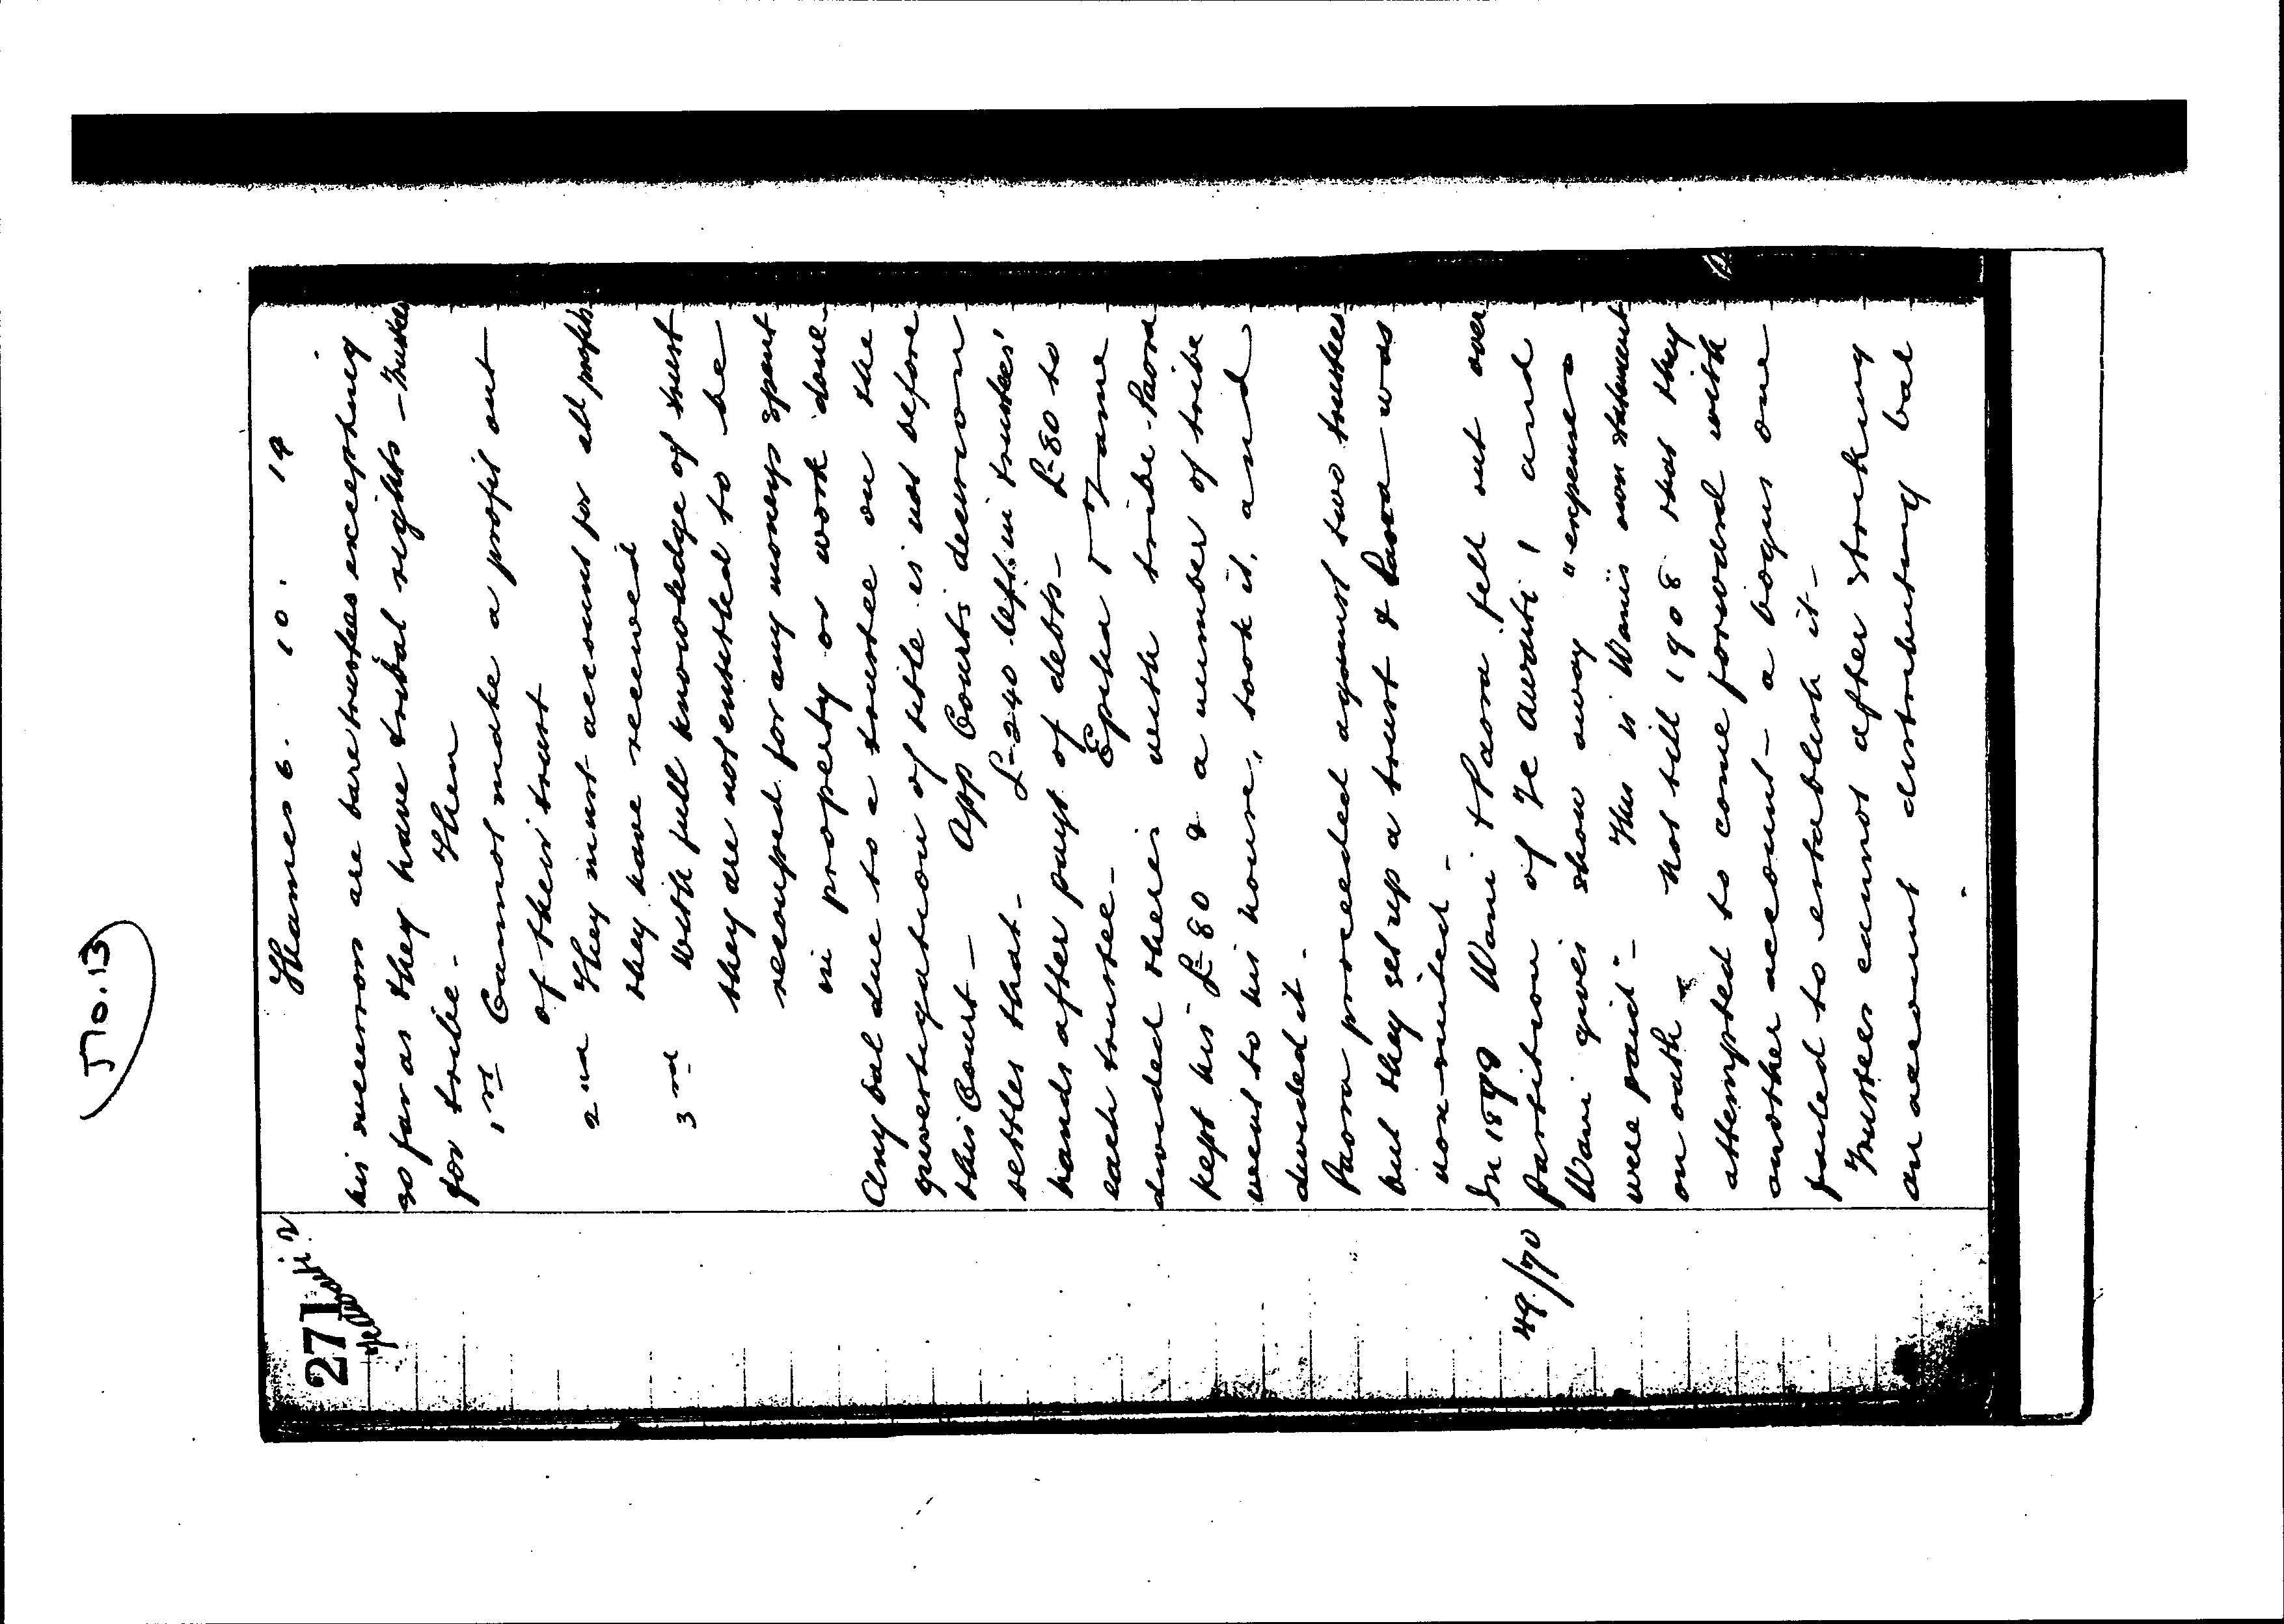 No. 13
271
Thames 6. 10. 19
his successors are bare trustees excepting
so far as they have tribal rights - Trustees
for tribe - Then
1st Cannot make a profit out
of their trust
2nd They must account for all profits
they have received
3rd With full knowledge of trust
they are not entitled to be
recouped for any moneys spent
in property or work done
Any bal due to a trustee on the
investigation of title is not before
this Court - App Court's decision
settles that - £240 left in trustees'
hands after payt of debts - £80 to
each trustee - Epiha &
divided theirs with tribe - Paora
kept his £80 & a number of tribe
went to his house, took it, and
divided it -
Paora proceeded against two trustees
but they set up a trust & Paora was
non-suited -
In 1899 Wani & Paora fell out over
49/70
partition of Te Awaiti 1 and
Wani gives show away "expenses
were paid" - This is Wani's own statement
on oath - Not till 1908 that they
attempted to come forward with
another account - a bogus one
failed to establish it -
Trustees cannot after striking
an account distributing bal